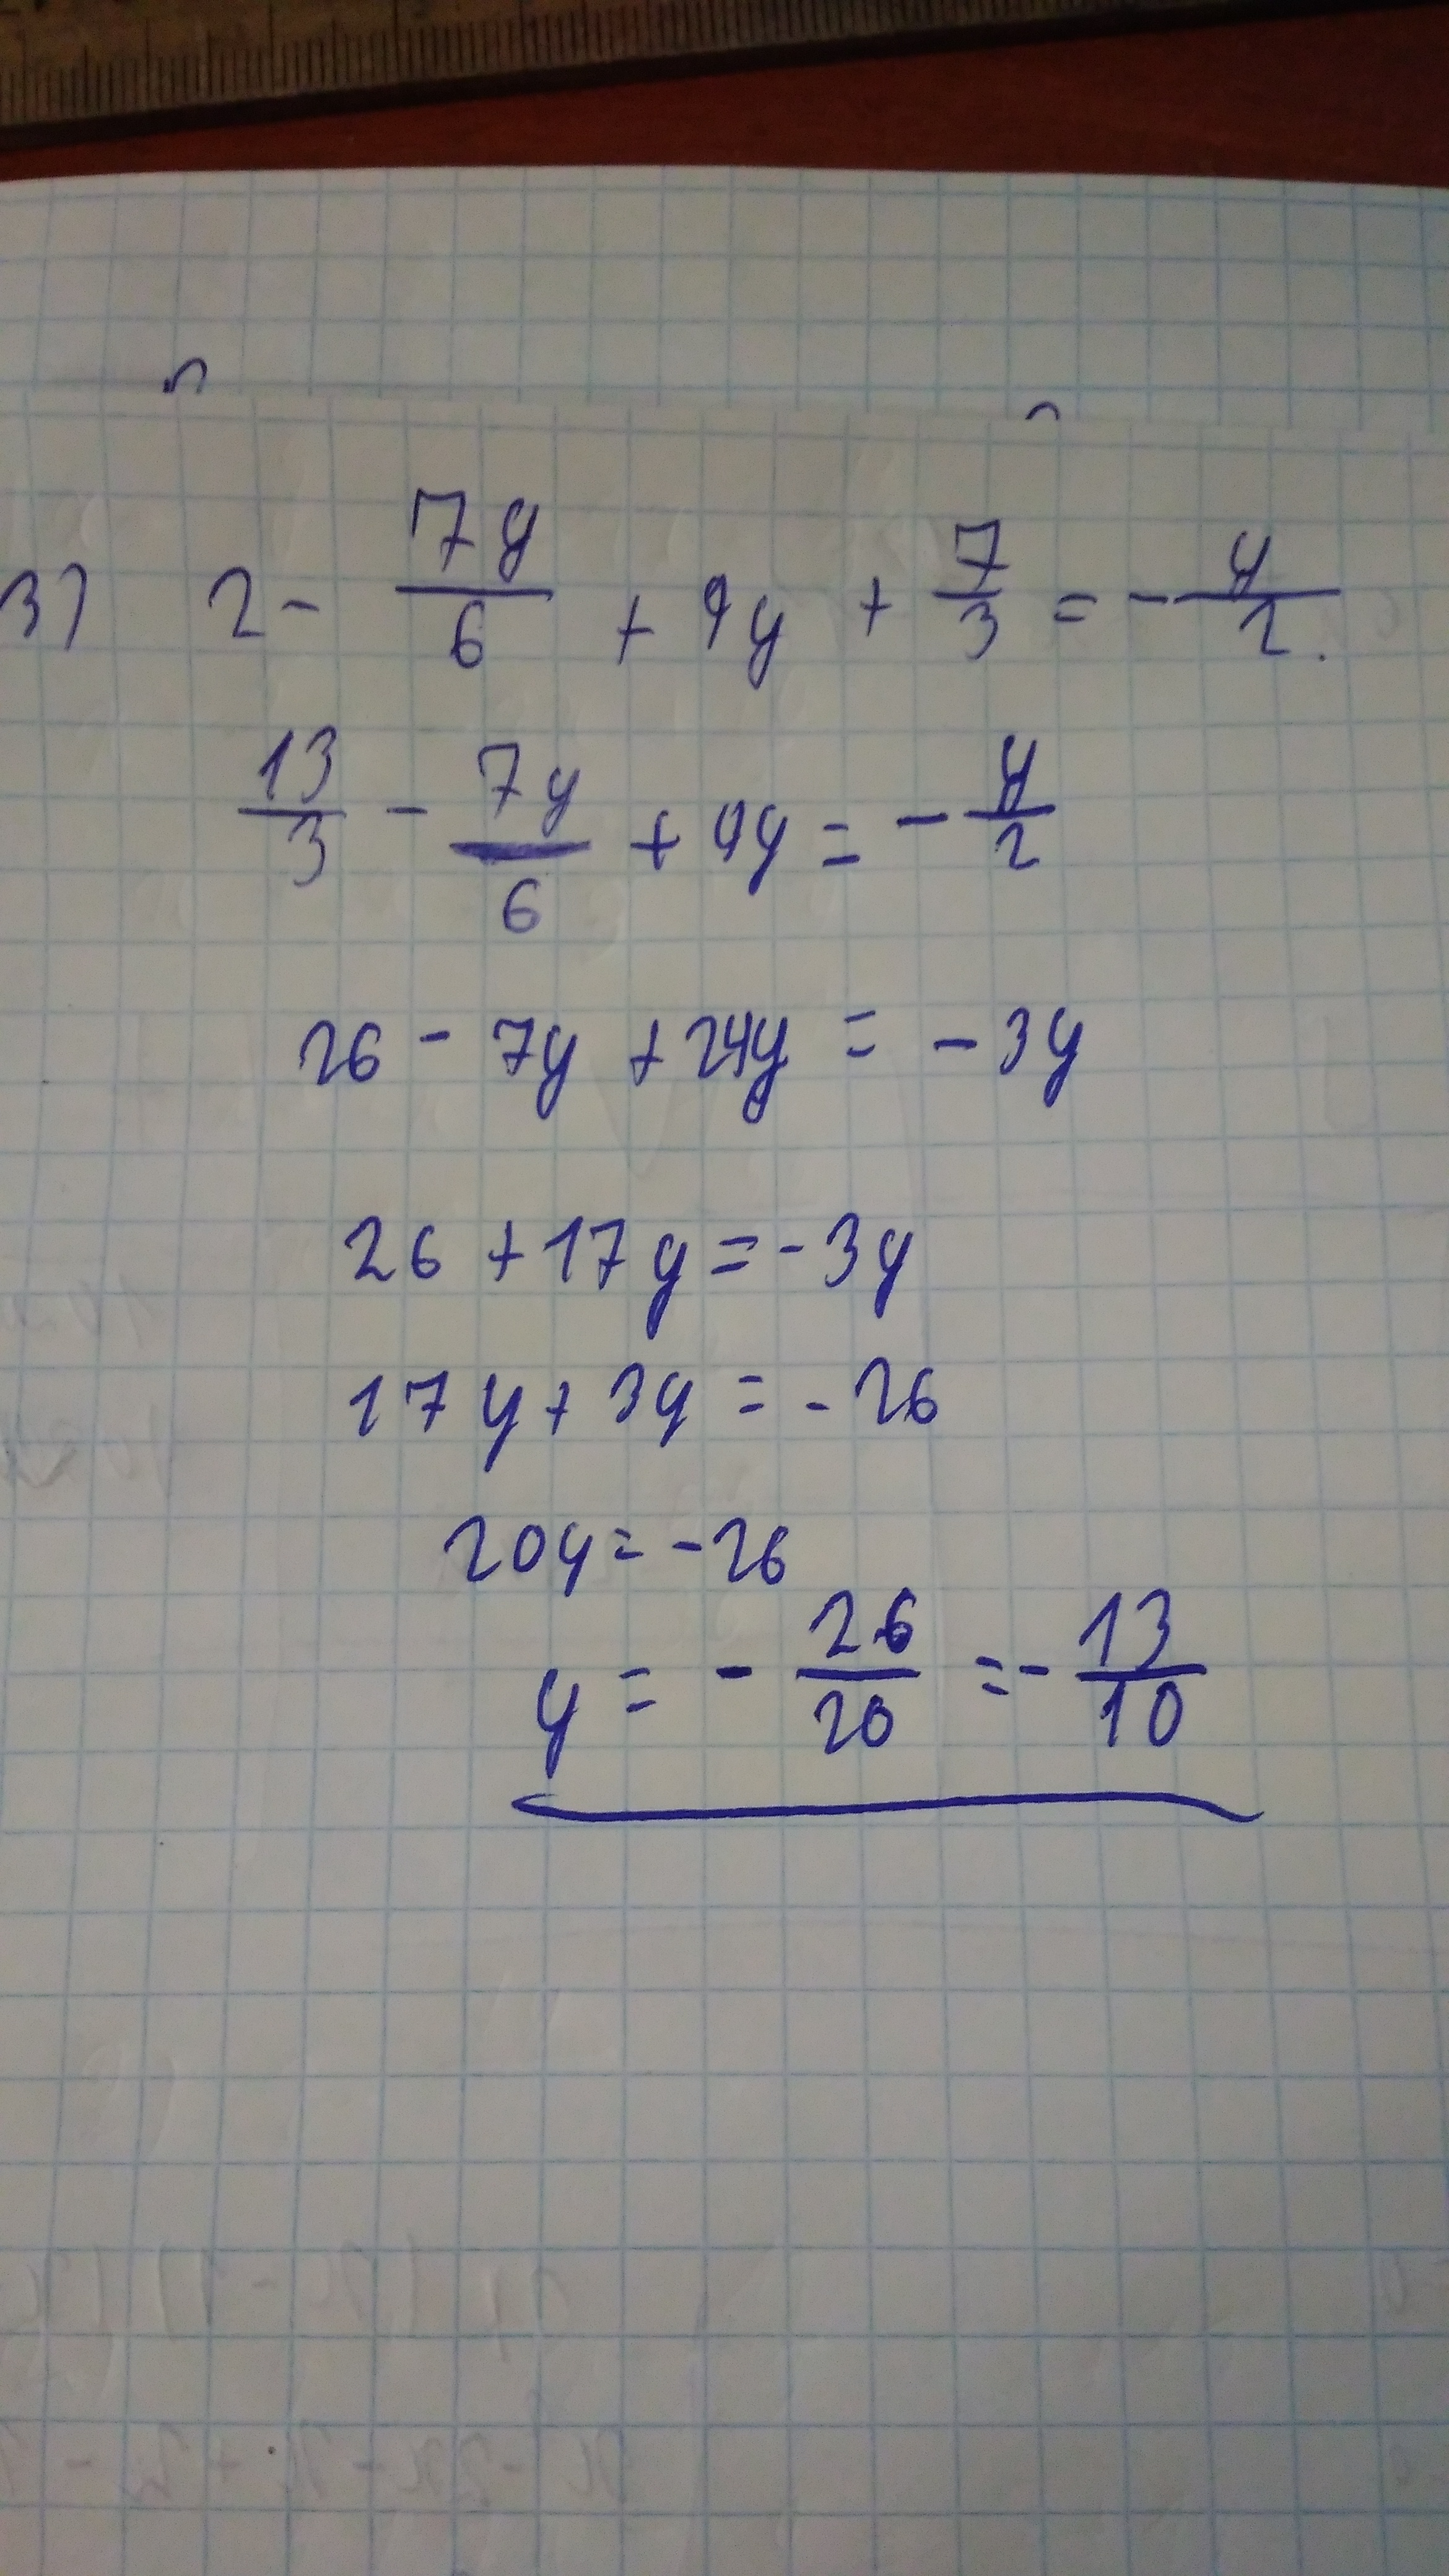 3) 2 - 7y/6 + 4y + 7/3 = - y/2.
13/3 - 7y/6 + 4y = - y/2
26 - 7y + 24y = - 3y
26 + 17y = - 3y
17y + 3y = - 26
20y = - 26
y = - 26/20 = - 13/10